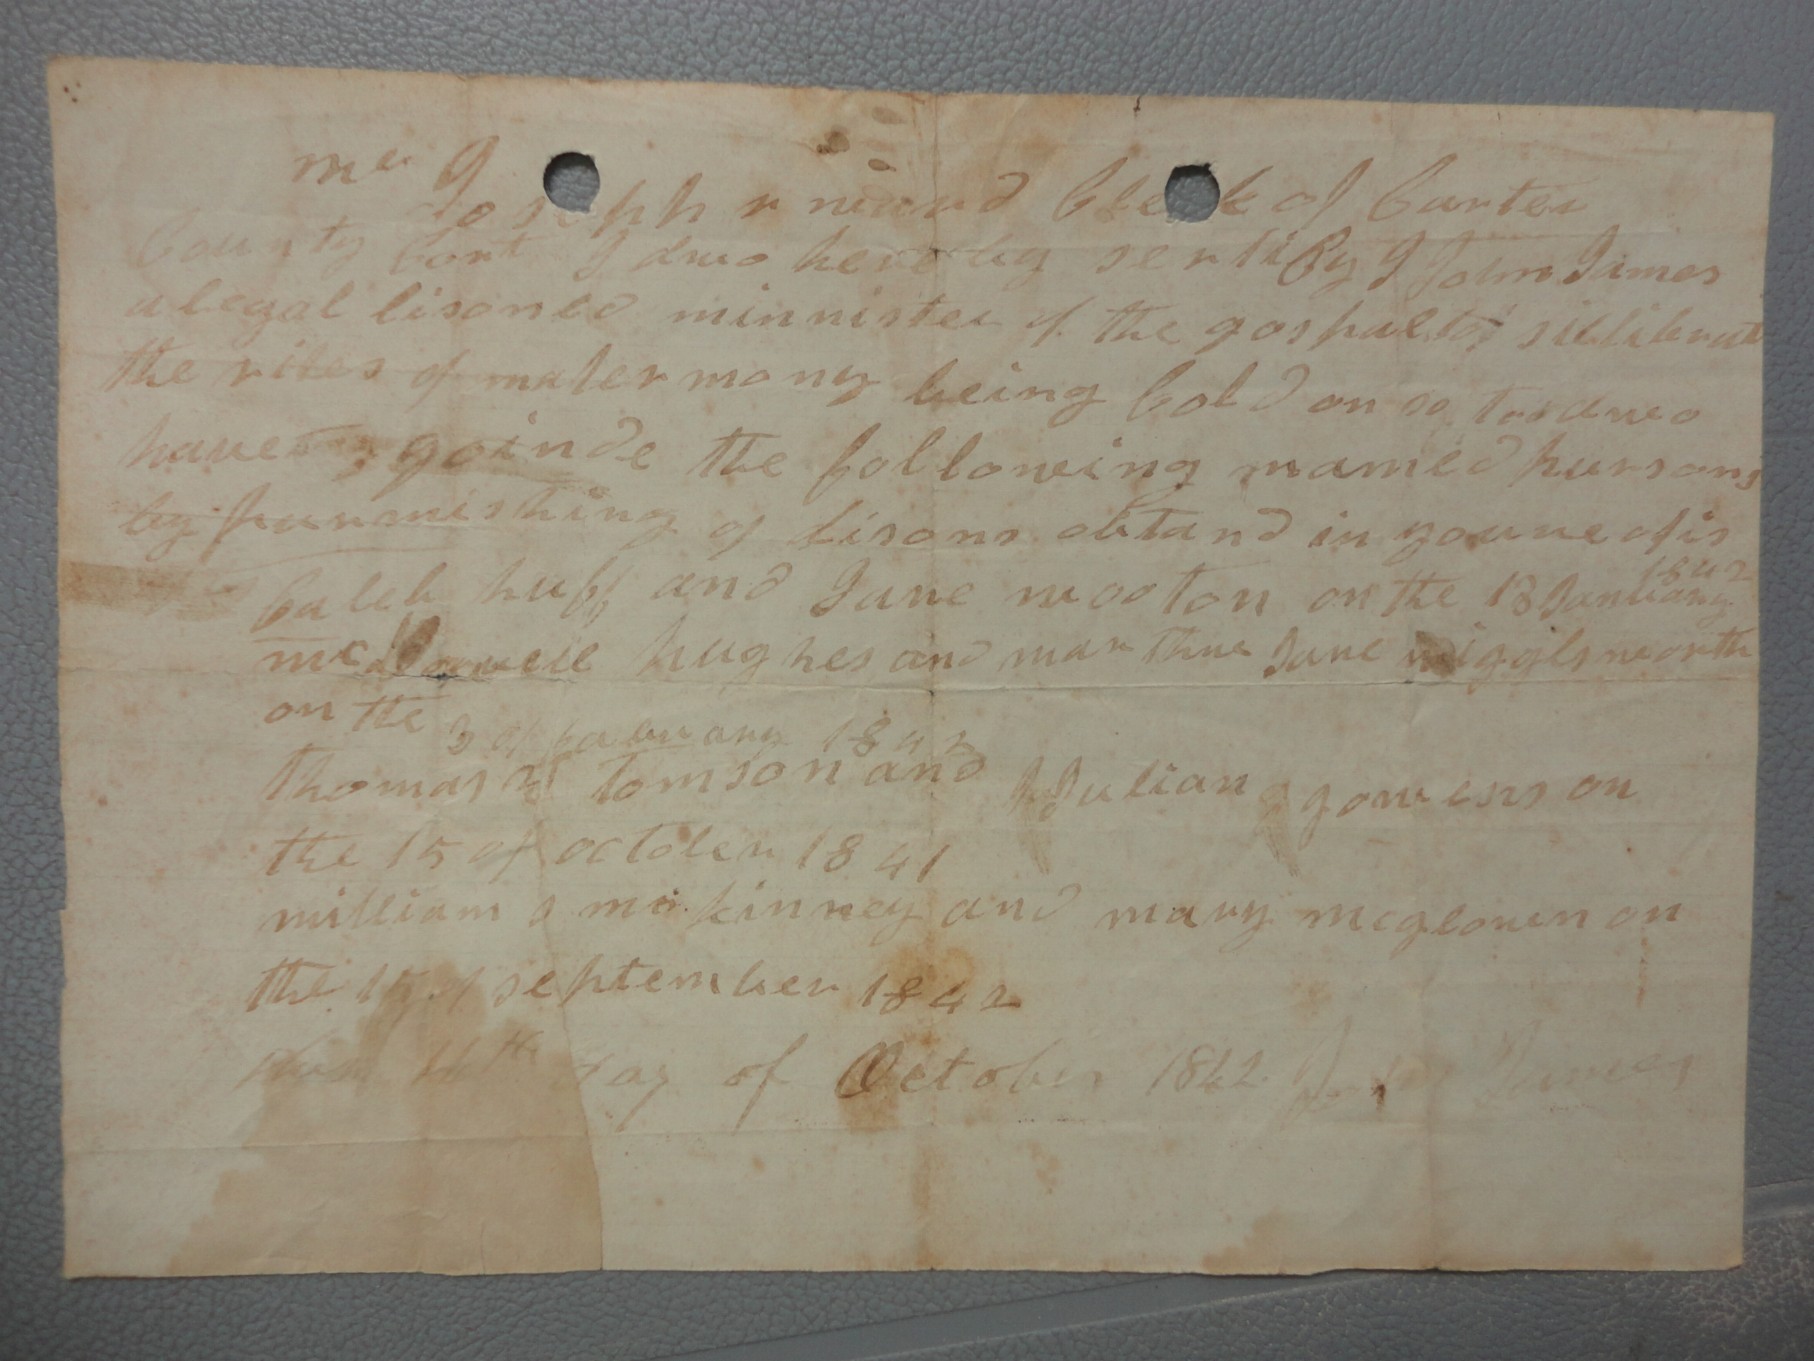 mr J
Joseph r neward Clerk of Carter
County Cort I dwo hereby sertify I John James
a legal lisoned minnister of the gospal to sillibrate
the rites of matermony being Cold on so to dwo
have goinde the following named pursons
by purmishing of lisons obtand in youre ofis
Caleb huff and Jane wooton on the 13 January 1842
mcdowell hughes and marthue Jane wigglsworth
on the 3 of fabuary 1842
thomas tomson and Julian gowens on
the 15 of october 1841
william s mckinney and mary mcglown on
the 15 of september 1842
4th day of October 1842 John James